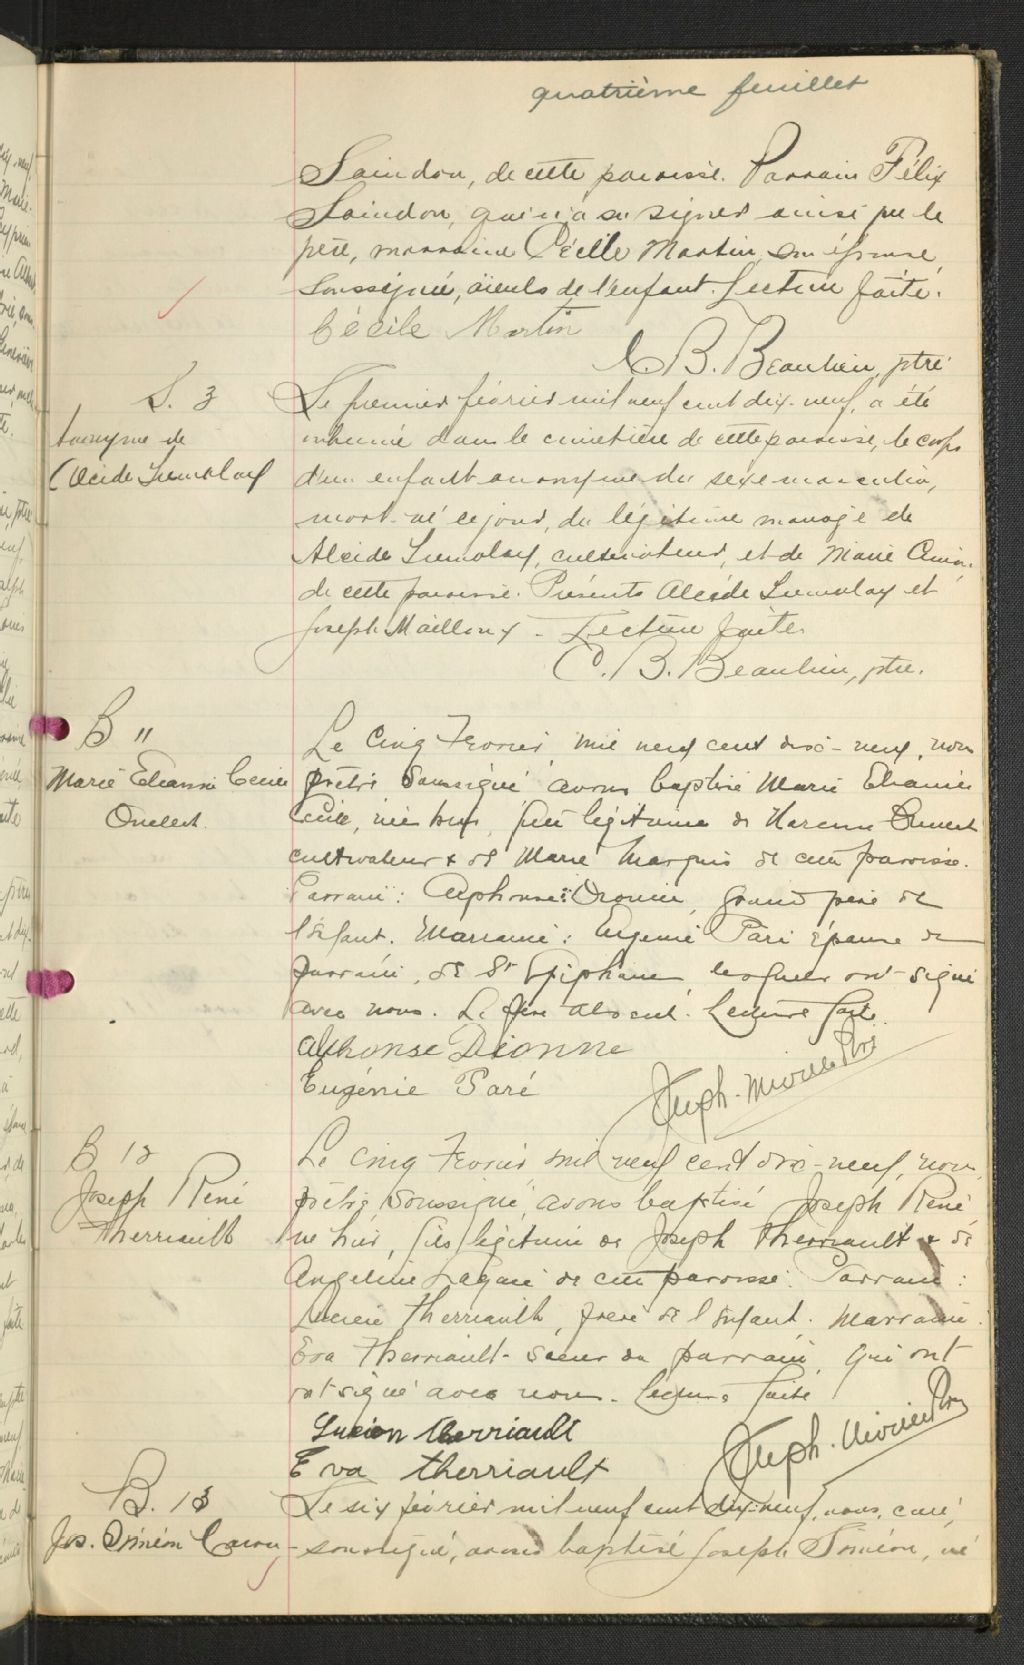 quatrième feuillet
Saindon, de cette paroisse. Parrain Félix
Saindon, qui n'a su signer ainsi que le
père, marraine Cécile Martin, son épouse,
soussignée, aïeuls de l'enfant. Lecture faite.
Cécile Martin
C. B. Beaulieu, ptre
S. 3
Anonyme de
Alcide Tremblay
Le premier février mil neuf cent dix-neuf, a été
inhumé dans le cimetière de cette paroisse, le corps
d'un enfant anonyme du sexe masculin,
mort-né ce jour, du légitime mariage de
Alcide Tremblay, cultivateur, et de Marie
de cette paroisse. Présents Alcide Tremblay et
Joseph Mailloux. Lecture faite.
C. B. Beaulieu, ptre.
B 11
Marie Cécile
Ouellet.
Le cinq Fevrier mil neuf cent dix-neuf, nous
prêtre soussigné avons baptisé Marie
Cécile, née hier, fille légitime de Ouellet
cultivateur & de Marie Marquis de cette paroisse.
Parrain: Alphonse Dionne, grand père de
l'enfant. Marraine: Eugenie Paré épouse du
parrain, de St Epiphane, lesquels ont signé
avec nous. Le père absent. Lecture faite.
Alphonse Dionne
Eugénie Paré
Jos. Ptre
B 12
Joseph René
Therriault
Le cinq Fevrier mil neuf cent dix-neuf, nous,
prêtre soussigné, avons baptisé Joseph René
né hier, fils légitime de Joseph Therriault & de
Angeline Lagacé de cette paroisse. Parrain:
Lucien Therriault, frère de l'enfant. Marraine
Eva Therriault - soeur du parrain, qui ont
ont signé avec nous. Lecture faite
Lucien Therriault
Eva Therriault
Ptre
B. 13
Jos. Siméon Caron
Le six février mil neuf cent dix-neuf, nous, curé,
soussigné, avons baptisé Joseph Siméon, né